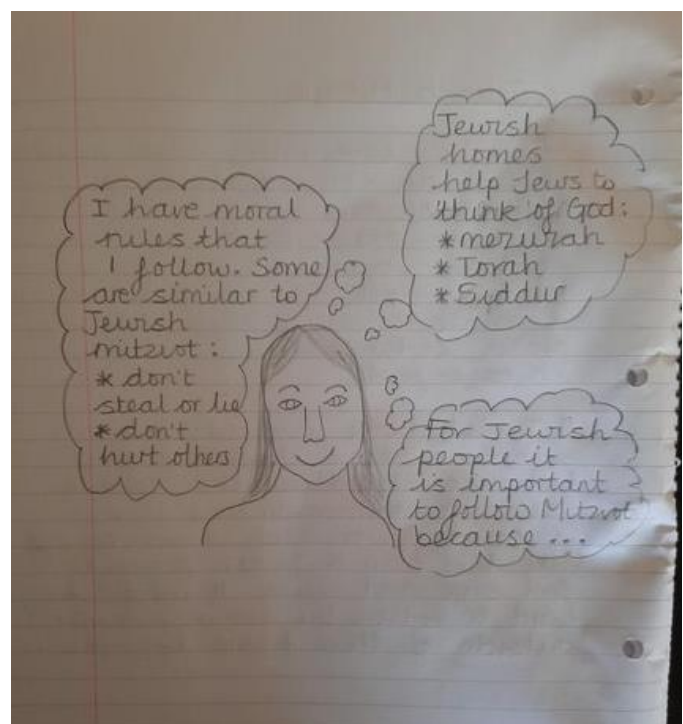 I have moral
rules that
I follow. Some
are similar to
Jewish
mitzvot :
* don't
steal or lie
* don't
hurt others
Jewish
homes
help Jews to
think of God :
* mezuzah
* Torah
* Siddur
For Jewish
people it
is important
to follow Mitzvot
because ...